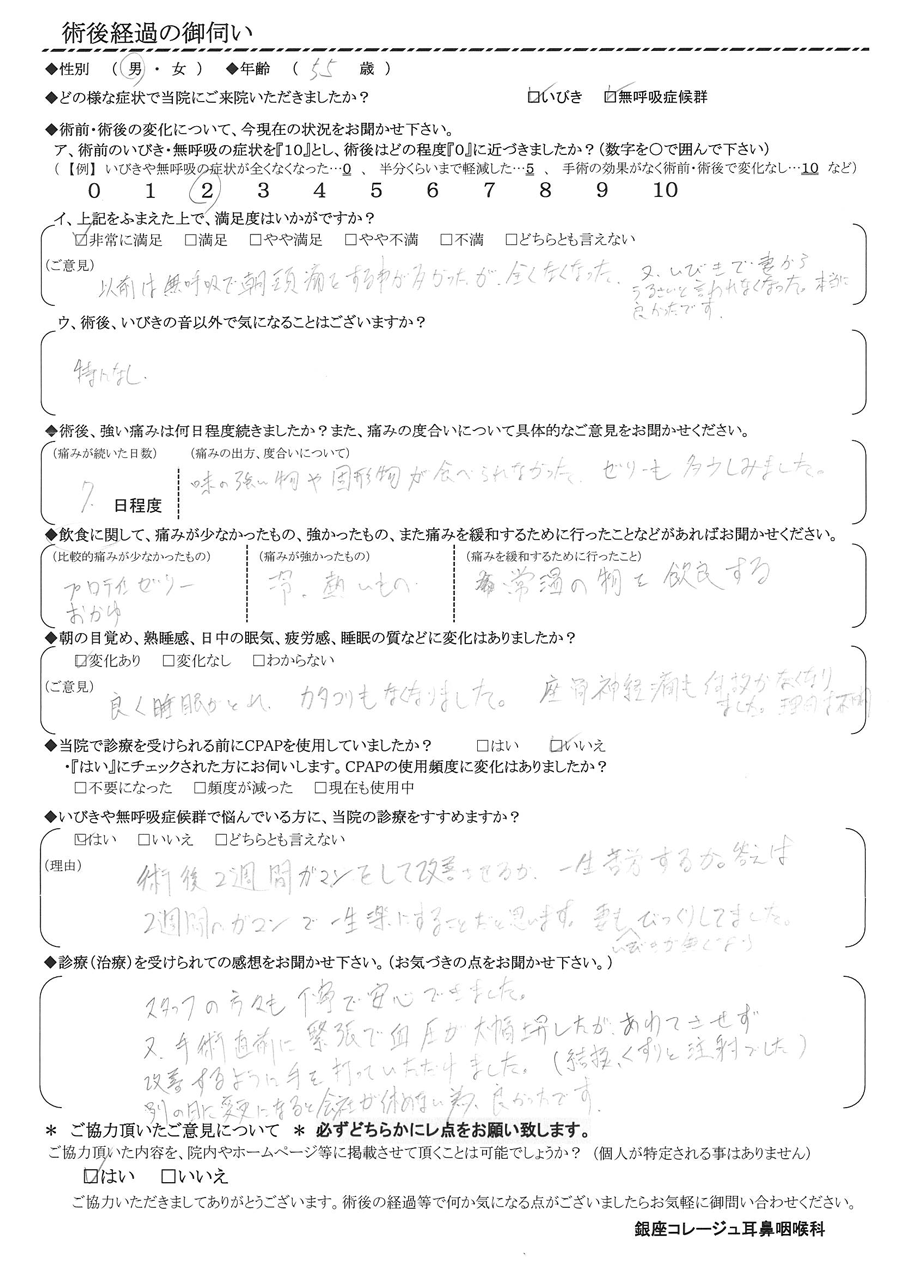 術後経過の御伺い
◆性別 （ 男 ・ 女 ） ◆年齢 （ 55 歳 ）
◆どの様な症状で当院にご来院いただきましたか？ ☑いびき ☑無呼吸症候群
◆術前・術後の変化について、今現在の状況をお聞かせ下さい。
ア、術前のいびき・無呼吸の症状を『10』とし、術後はどの程度『0』に近づきましたか？（数字を〇で囲んで下さい）
（【例】 いびきや無呼吸の症状が全くなくなった…0 、 半分くらいまで軽減した…5 、 手術の効果がなく術前・術後で変化なし…10 など）
0 1 2 3 4 5 6 7 8 9 10
イ、上記をふまえた上で、満足度はいかがですか？
☑非常に満足 □満足 □やや満足 □やや不満 □不満 □どちらとも言えない
（ご意見）
以前は無呼吸で朝頭痛をする事が多かったが、全くなくなった。又、いびきで妻から
うるさいと言われなくなった。本当に
良かったです。
ウ、術後、いびきの音以外で気になることはございますか？
特になし。
◆術後、強い痛みは何日程度続きましたか？また、痛みの度合いについて具体的なご意見をお聞かせください。
（痛みが続いた日数） （痛みの出方、度合いについて）
7 日程度 味の強い物や固形物が食べられなかった。ゼリーも多少しみました。
◆飲食に関して、痛みが少なかったもの、強かったもの、また痛みを緩和するために行ったことなどがあればお聞かせください。
（比較的痛みが少なかったもの） （痛みが強かったもの） （痛みを緩和するために行ったこと）
プロテインゼリー 冷、熱いもの 常温の物を飲食する
おかゆ
◆朝の目覚め、熟睡感、日中の眠気、疲労感、睡眠の質などに変化はありましたか？
☑変化あり □変化なし □わからない
（ご意見）
良く睡眠がとれ、カタコリもなくなりました。座骨神経痛も何故かなくなり
ました。理由は不明
◆当院で診療を受けられる前にCPAPを使用していましたか？ □はい ☑いいえ
・『はい』にチェックされた方にお伺いします。CPAPの使用頻度に変化はありましたか？
□不要になった □頻度が減った □現在も使用中
◆いびきや無呼吸症候群で悩んでいる方に、当院の診療をすすめますか？
☑はい □いいえ □どちらとも言えない
（理由）
術後2週間ガマンをして改善させるか、一生苦労するか。答えは
2週間のガマンで一生楽にすることだと思います。妻もびっくりしてました。
いびきが無くなり
◆診療（治療）を受けられての感想をお聞かせ下さい。（お気づきの点をお聞かせ下さい。）
スタッフの方々も丁寧で安心できました。
又、手術直前に緊張で血圧が大幅上昇したが、あわてさせず
改善するように手を打っていただけました。（結極、くすりと注射でした）
別の日に変更になると会社が休めない為、良かったです。
＊ ご協力頂いたご意見について ＊ 必ずどちらかにレ点をお願い致します。
ご協力頂いた内容を、院内やホームページ等に掲載させて頂くことは可能でしょうか？ （個人が特定される事はありません）
☑はい □いいえ
ご協力いただきましてありがとうございます。術後の経過等で何か気になる点がございましたらお気軽に御問い合わせください。
銀座コレージュ耳鼻咽喉科